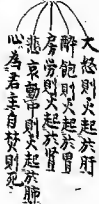 大怒則火起於肝
醉飽則火起於胃
房勞則火起於腎
悲哀動中則火起於肺
心為君主自焚則死